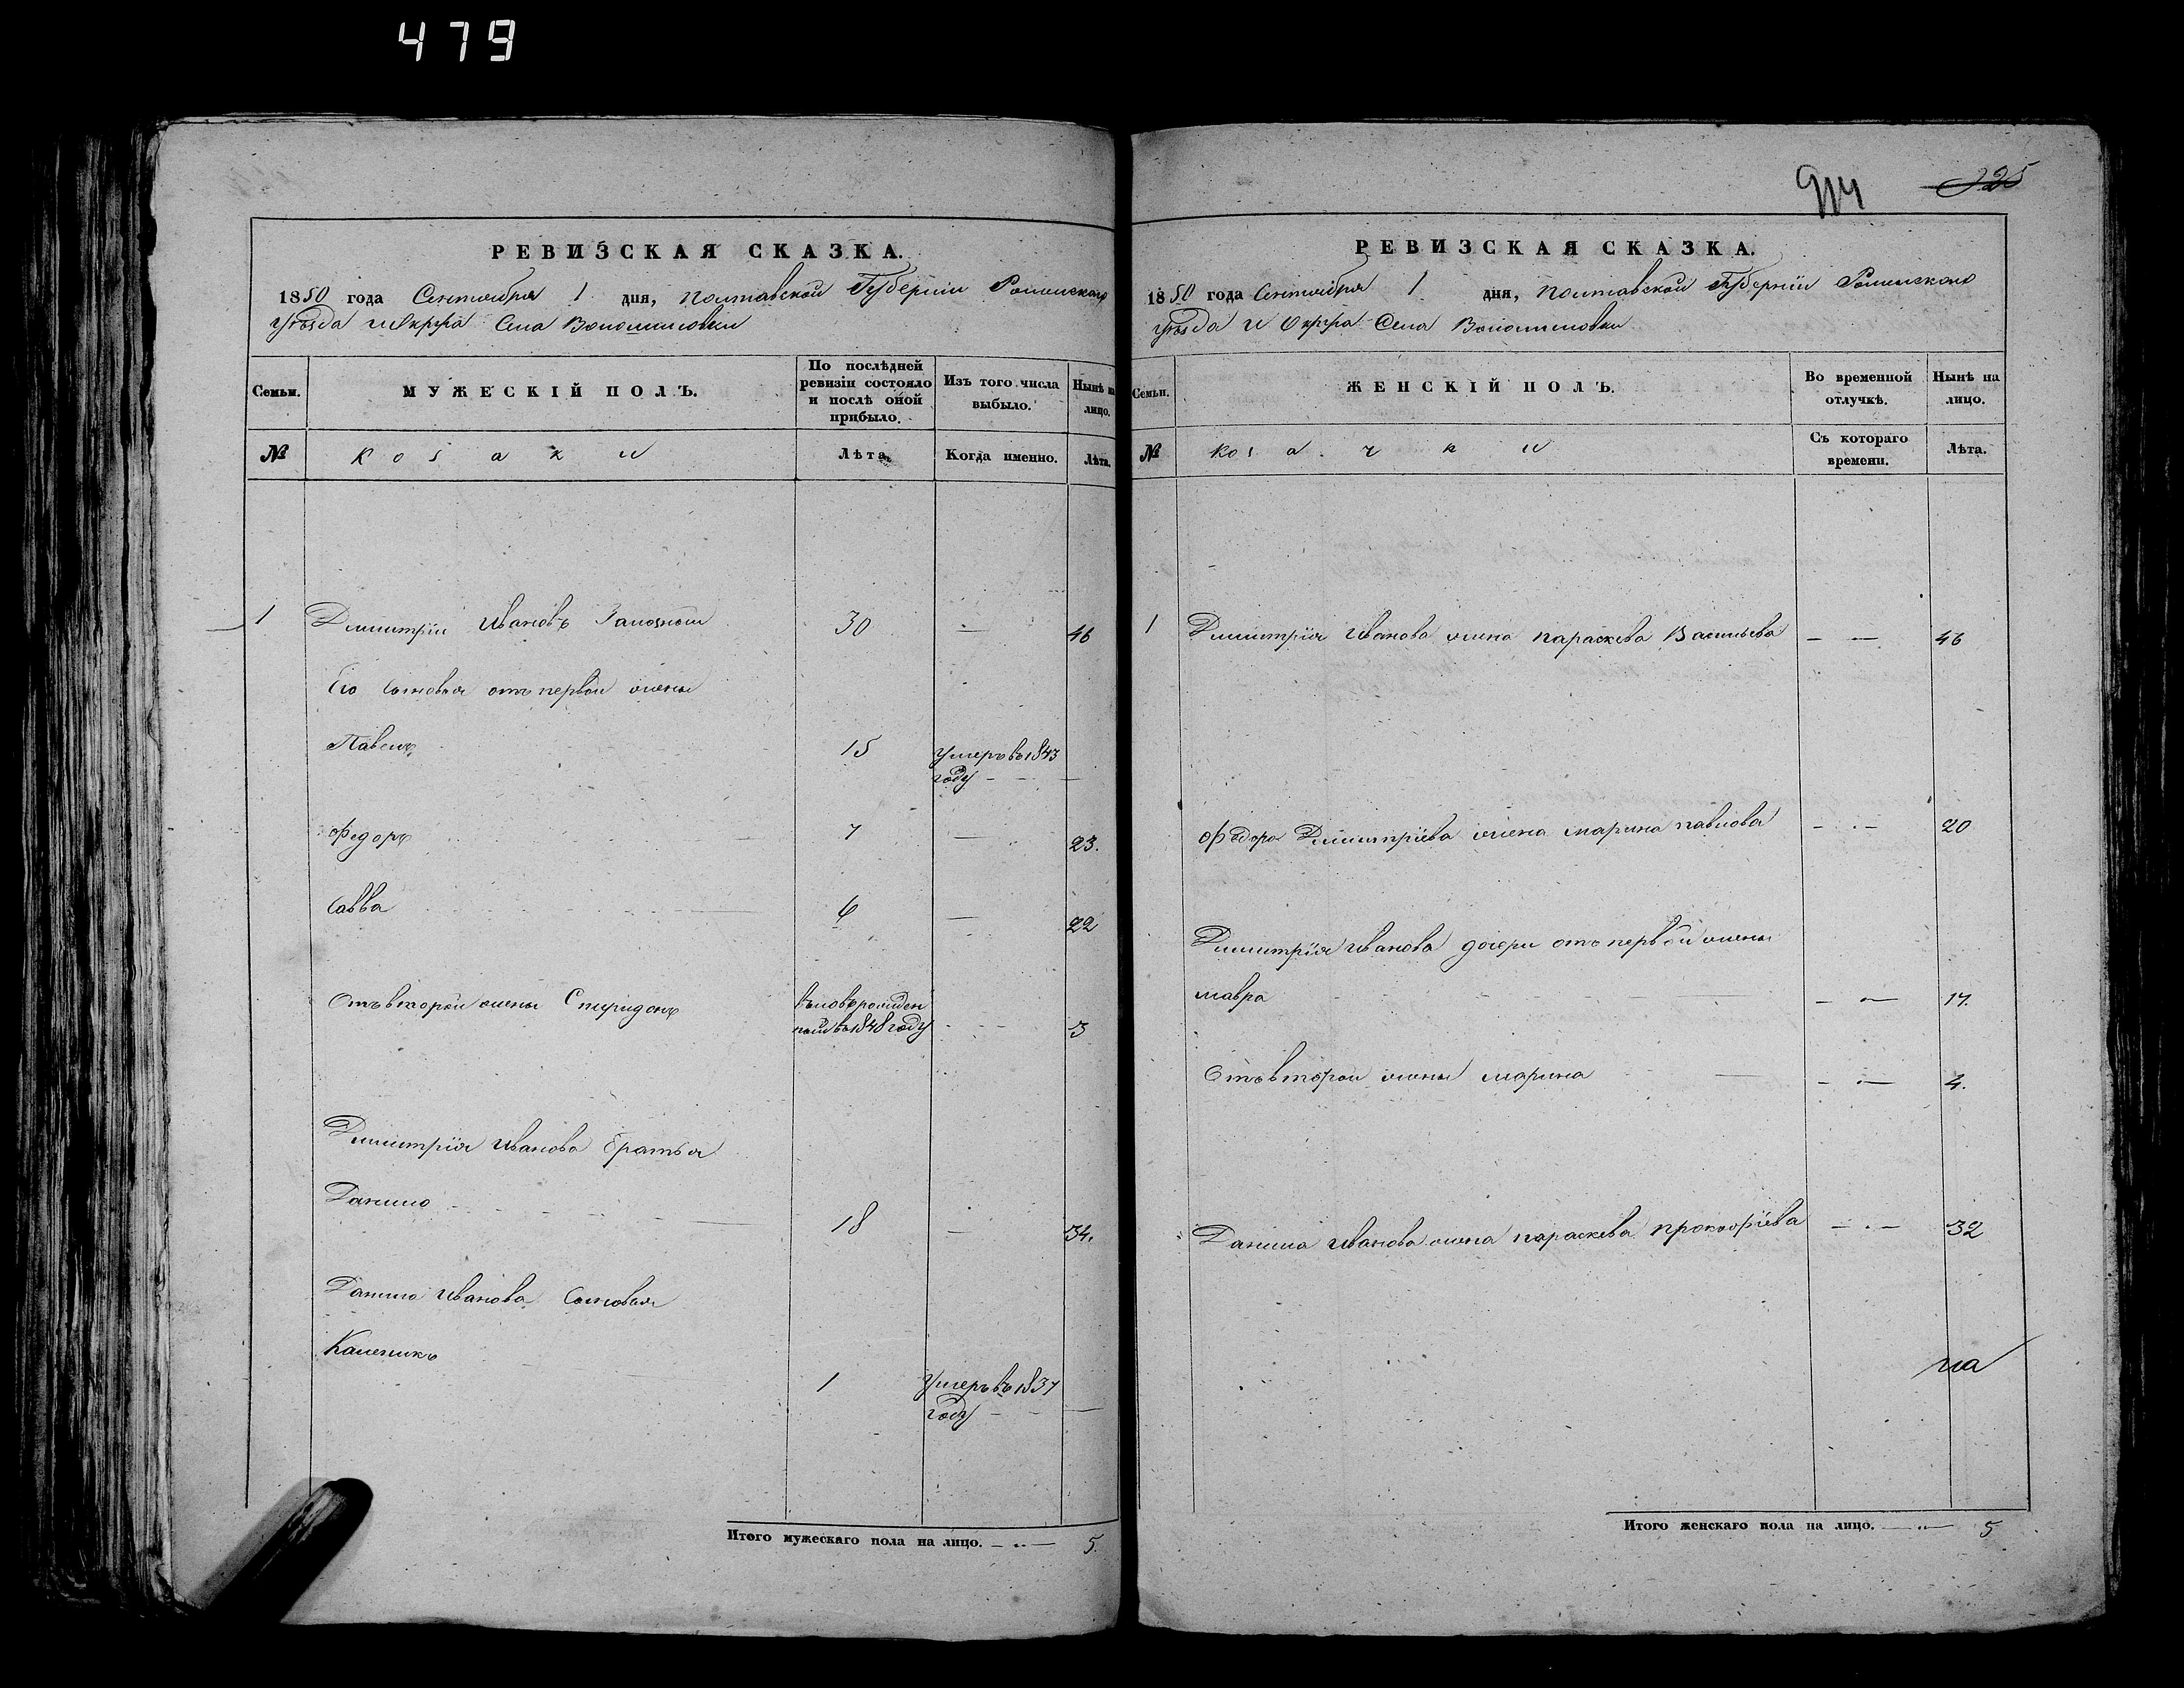 479
РЕВИЗСКАЯ СКАЗКА.
1850 года Сентября 1 дня, Полтавской Губерніи Роменского
уѣзда и Округа Села Волошиновки
Семьи.
МУЖЕСКІЙ ПОЛЪ.
По послѣдней ревизіи состояло и послѣ оной прибыло.
Изъ того числа выбыло.
Нынѣ на лицо.
№
козаки
Лѣта.
Когда именно.
Лѣта.
1 Димитрій Ивановъ 30 — 46
Его сыновья отъ первой жены
Павелъ 15 Умеръ въ 1843
году — —
Федоръ 7 — 23.
Савва 6 — 22
Отъ второй жены Спиридонъ вновь рожден
ный въ 1848 году — 3
Димитрія Иванова братья
Данило 18 — 34.
Данила Иванова сыновья
Каленикъ 1 Умеръ въ 1837
году — —
Итого мужескаго пола на лицо. 5.
914 225
РЕВИЗСКАЯ СКАЗКА.
1850 года Сентября 1 дня, Полтавской Губерніи Роменского
уѣзда и Округа Села Волошиновки
Семьи.
ЖЕНСКІЙ ПОЛЪ.
Во временной отлучкѣ.
Нынѣ на лицо.
№
козачки
Съ котораго времени.
Лѣта.
1 Димитрія Иванова жена Параскева Васильева — — 46
Федора Димитріева жена Марина Павлова — — 20
Димитрія Иванова дочери отъ первой жены
Мавра — — 17.
Отъ второй жены Марина — — 4.
Данила Иванова жена Параскева Прокофіева — — 32
Итого женскаго пола на лицо. 5